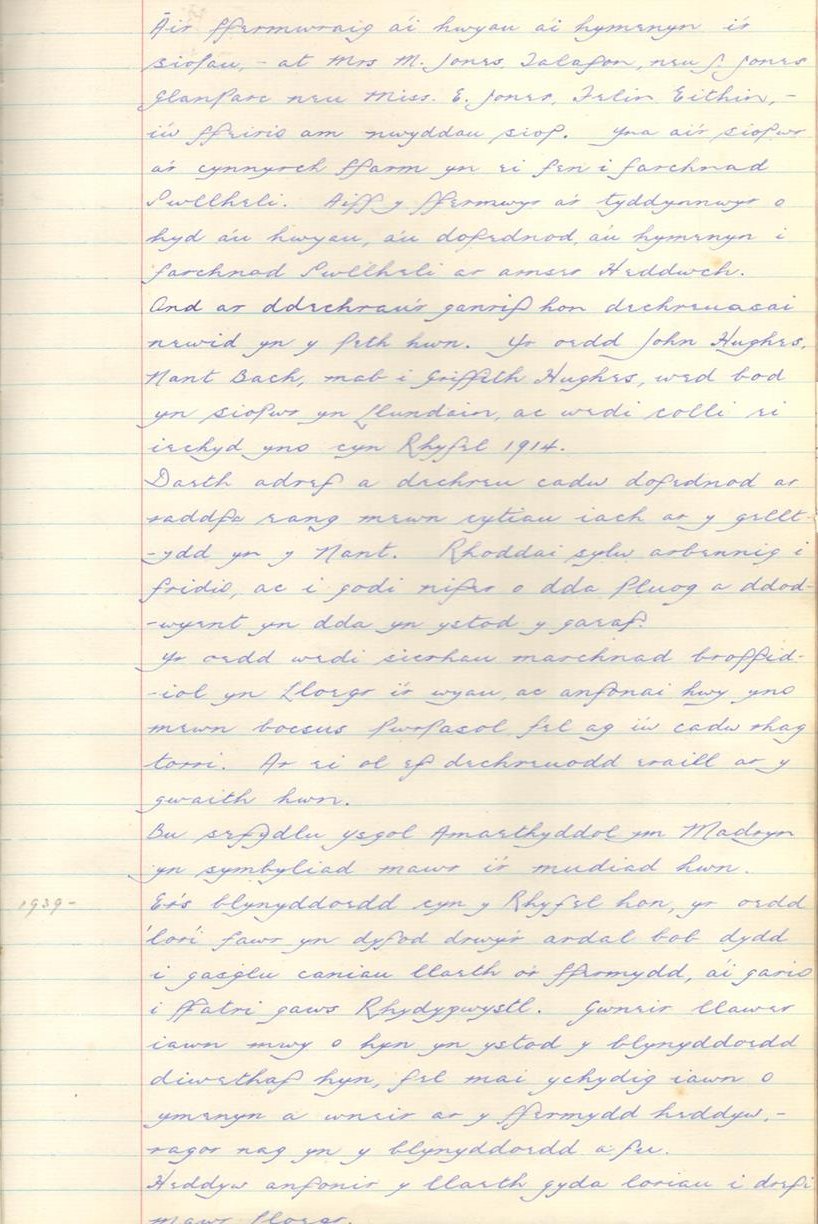 Âi'r ffermwraig a'i hwyau a'i hymenyn i'r
siopau, - at Mrs M. Jones, Talafon, neu J. Jones
Glanfarc neu Miss. E. Jones, Felin Eithin, -
i'w ffeirio am nwyddau siop. Yna ai'r siopwr
a'r cynnyrch ffarm yn ei fen i farchnad
Pwllheli. Aiff y ffermwyr a'r tyddynnwyr o
hyd a'u hwyau, a'u dofednod, a'u hymenyn i
farchnad Pwllheli ar amser Heddwch.
Ond ar ddechrau'r ganrif hon dechreuasai
newid yn y peth hwn. Yr oedd John Hughes,
Nant Bach, mab i Griffith Hughes, wed bod
yn siopwr yn Llundain, ac wedi colli ei
iechyd yno cyn Rhyfel 1914.
Daeth adref a dechreu cadw dofednod ar
raddfa eang mewn cytiau iach ar y gellt-
-ydd yn y Nant. Rhoddai sylw arbennig i
fridio, ac i godi nifer o dda pluog a ddod-
-wyent yn dda yn ystod y gaeaf.
Yr oedd wedi sicrhau marchnad broffid-
-iol yn Lloegr i'r wyau, ac anfonai hwy yno
mewn bocsus pwrpasol fel ag i'w cadw rhag
torri. Ar ei ol ef dechreuodd eraill ar y
gwaith hwn.
Bu sefydlu ysgol Amaethyddol ym Madryn
yn symbyliad mawr i'r mudiad hwn.
1939- Ers blynyddoedd cyn y Rhyfel hon, yr oedd
'lori' fawr yn dyfod drwy'r ardal bob dydd
i gasglu caniau llaeth o'r ffermydd, a'i gario
i ffatri gaws Rhydygwystl. Gwneir llawer
iawn mwy o hyn yn ystod y blynyddoedd
diwethaf hyn, fel mai ychydig iawn o
ymenyn a wneir ar y ffermydd heddyw, -
ragor nag yn y blynyddoedd a fu.
Heddyw anfonir y llaeth gyda loriau i drefi
mawr Lloegr.